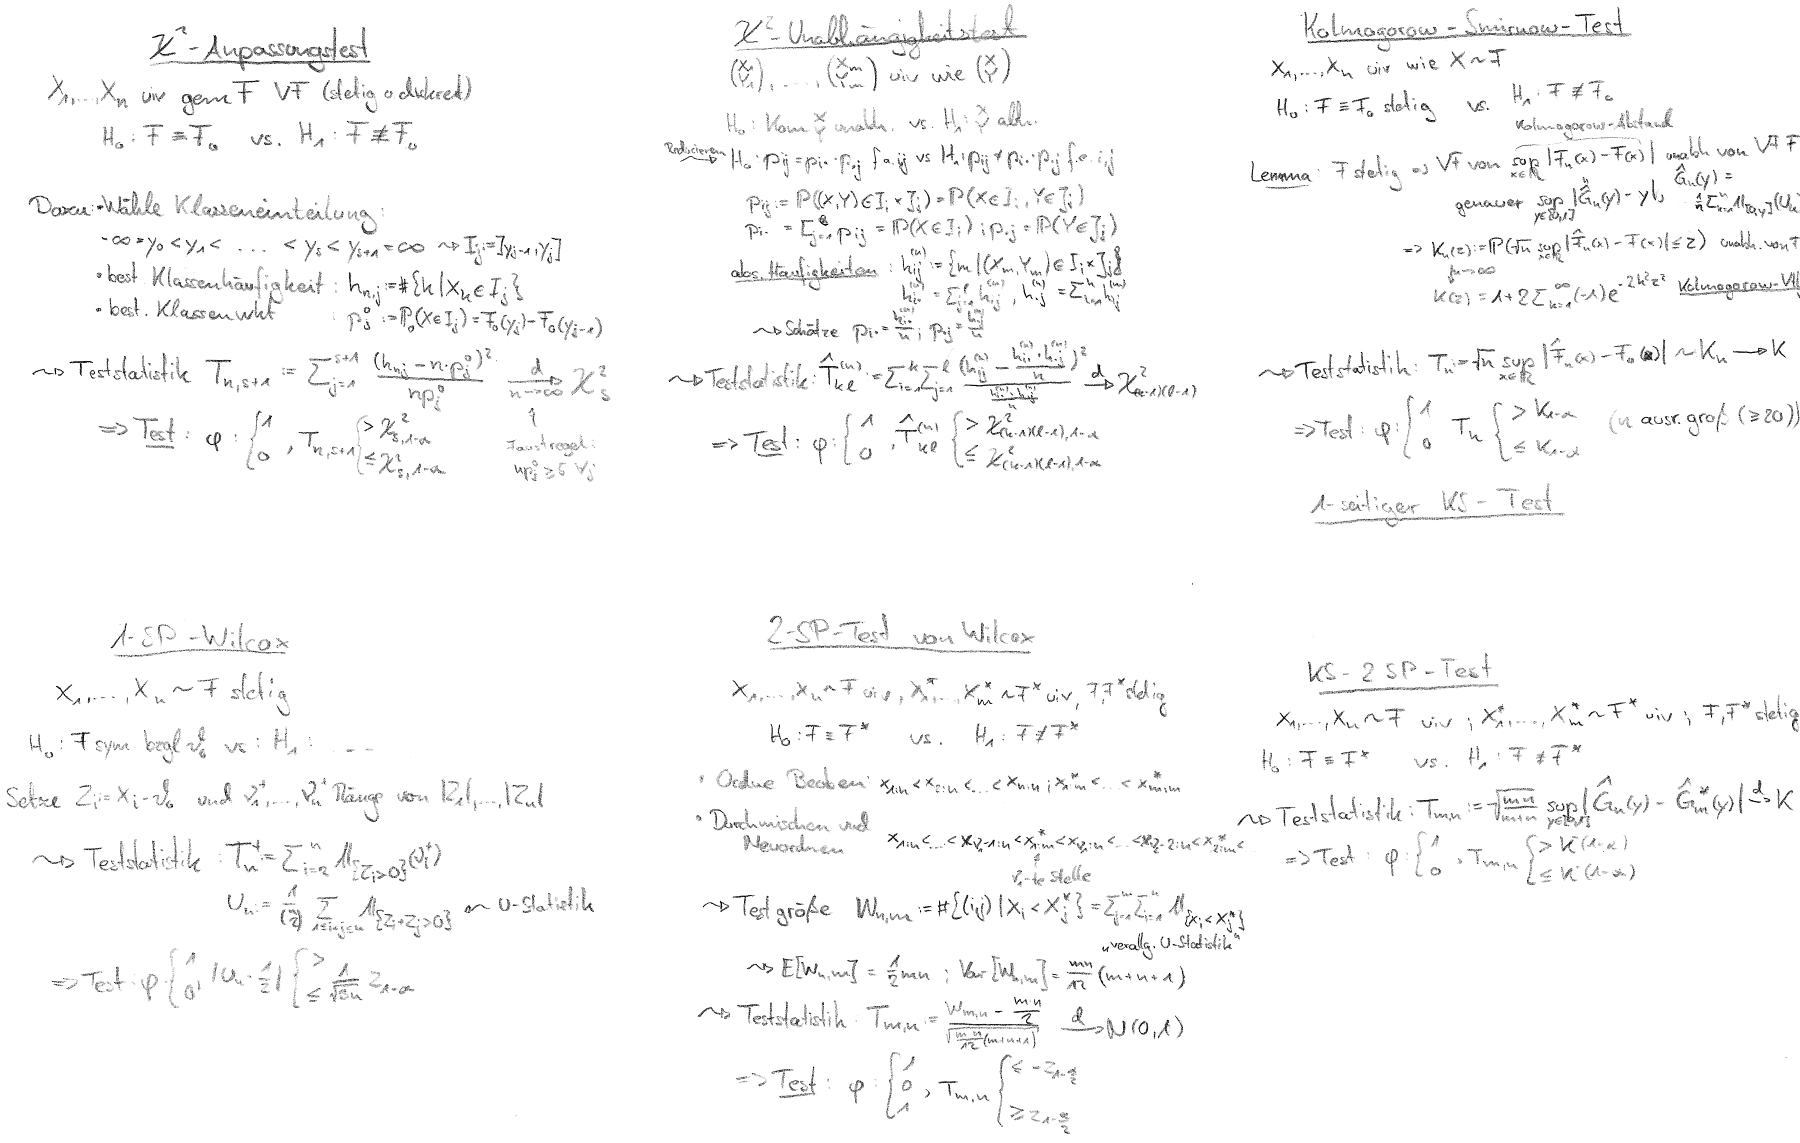 χ²-Anpassungstest
X₁,...,Xₙ uiv gem F VF (stetig o diskret)
H₀: F ≡ F₀ vs. H₁: F ≢ F₀
Dazu: • Wähle Klasseneinteilung:
-∞ = y₀ < y₁ < ... < yₛ < yₛ₊₁ = ∞ ⇝ Iⱼ = ]yⱼ₋₁, yⱼ]
• best. Klassenhäufigkeit: hₙ,ⱼ := #{k | Xₖ ∈ Iⱼ}
• best. Klassenwkt : pⱼ⁰ := P₀(X ∈ Iⱼ) = F₀(yⱼ) - F₀(yⱼ₋₁)
⇝ Teststatistik Tₙ,ₛ₊₁ := Σⱼ₌₁ˢ⁺¹ (hₙⱼ - n·pⱼ⁰)² / npⱼ⁰ →d n→∞ χ²ₛ
⇒ Test: φ: { 1 0 , Tₙ,ₛ₊₁ { > χ²ₛ,₁₋α ≤ χ²ₛ,₁₋α
↑ Faustregel:
npⱼ⁰ ≥ 5 ∀j
χ²-Unabhängigkeitstest
(X₁ Y₁), ...., (Xₘ Yₘ) uiv wie (X Y)
H₀: Kom X Y unabh. vs. H₁: X Y abh.
Reduzieren ⇝ H₀: pij = pi. · p.j f.a. ij vs H₁: pij ≠ pi. · p.j f.e. i,j
pij = P((X,Y) ∈ Ii × Jj) = P(X ∈ Ii, Y ∈ Jj)
pi. = Σⱼ₌₁ˡ pij = P(X ∈ Ii); p.j = P(Y ∈ Jj)
abs. Häufigkeiten: hij⁽ⁿ⁾ := {m | (Xm, Ym) ∈ Ii × Jj}
hi.⁽ⁿ⁾ = Σⱼ₌₁ˡ hij⁽ⁿ⁾, h.j⁽ⁿ⁾ = Σᵢ₌₁ᵏ hij⁽ⁿ⁾
⇝ Schätze pi. = hi.⁽ⁿ⁾/n ; p.j = h.j⁽ⁿ⁾/n
⇝ Teststatistik: T̂kℓ⁽ⁿ⁾ := Σᵢ₌₁ᵏ Σⱼ₌₁ˡ (hij⁽ⁿ⁾ - hi.⁽ⁿ⁾·h.j⁽ⁿ⁾/n)² / (hi.⁽ⁿ⁾·h.j⁽ⁿ⁾/n) →d χ²(k-1)(ℓ-1)
⇒ Test: φ: { 1 0 , T̂kℓ⁽ⁿ⁾ { > χ²(k-1)(ℓ-1),1-α ≤ χ²(k-1)(ℓ-1),1-α
Kolmogorow-Smirnow-Test
X₁,...,Xₙ uiv wie X ~ F
H₀: F ≡ F₀ stetig vs. H₁: F ≢ F₀
Kolmogorow-Abstand
Lemma: F stetig ⇒ VF von sup x∈ℝ |F̂ₙ(x) - F(x)| unabh von VF F
genauer sup y∈[0,1] |Ĝₙ(y) - y|, Ĝₙ(y) = 1/n Σₖ₌₁ⁿ 1[0,y](Uₖ)
⇒ Kₙ(z) := P(√n sup x∈ℝ |F̂ₙ(x) - F(x)| ≤ z) unabh. von F
↓ n→∞
K(z) = 1 + 2 Σₖ₌₁^∞ (-1) e^(-2k²z²) Kolmogorow-Vtlg
⇝ Teststatistik: Tₙ := √n sup x∈ℝ |F̂ₙ(x) - F₀(x)| ~ Kₙ → K
⇒ Test: φ: { 1 0 Tₙ { > K₁₋α ≤ K₁₋α (n ausr. groß (≥20))
1-seitiger KS-Test
1-SP-Wilcox
X₁,...,Xₙ ~ F stetig
H₀: F sym bzgl ϑ₀ vs: H₁: ....
Setze Zᵢ = Xᵢ - ϑ₀ und ν₁⁺,...,νₙ⁺ Ränge von |Z₁|,...,|Zₙ|
⇝ Teststatistik: Tₙ⁺ = Σᵢ₌₂ⁿ 1{Zᵢ>0}(νᵢ⁺)
Uₙ = 1/(n 2) Σ 1≤i<j≤n 1{Zᵢ+Zⱼ>0} ⇝ U-Statistik
⇒ Test: φ { 1 0 , |Uₙ - 1/2| { > ≤ 1/√3n z₁₋α
2-SP-Test von Wilcox
X₁,...,Xₙ ~ F uiv, X₁*,..., Xₘ* ~ F* uiv, F,F* stetig
H₀: F ≡ F* vs. H₁: F ≠ F*
• Ordne Beoben: x₁:ₙ < x₂:ₙ < ... < xₙ:ₙ ; x₁:ₘ* < ... < xₘ:ₘ*
• Durchmischen und
Neuordnen x₁:ₙ < ... < xν₁₋₁:ₙ < x₁:ₘ* < xν₁:ₙ < ... < xν₂₋₂:ₙ < x₂:ₘ* < ...
↑ ν₁-te Stelle
⇝ Testgröße Wₙ,ₘ := #{(i,j) | Xᵢ < Xⱼ*} = Σⱼ₌₁ᵐ Σᵢ₌₁ⁿ 1{Xᵢ < Xⱼ*}
„verallg. U-Statistik“
⇝ E[Wₙ,ₘ] = 1/2 mn ; Var[Wₙ,ₘ] = mn/12 (m+n+1)
⇝ Teststatistik: Tₘ,ₙ := (Wₘ,ₙ - m·n/2) / √(m·n/12 (m+n+1)) →d N(0,1)
⇒ Test: φ: { 1 0 1 , Tₘ,ₙ { ≤ -z₁₋α/2 ≥ z₁₋α/2
KS-2SP-Test
X₁,...,Xₙ ~ F uiv ; X₁*,..., Xₘ* ~ F* uiv ; F,F* stetig
H₀: F ≡ F* vs. H₁: F ≠ F*
⇝ Teststatistik: Tₘ,ₙ := √(mn/(m+n)) sup y∈[0,1] |Ĝₙ(y) - Ĝₘ*(y)| →d K
⇒ Test: φ: { 1 0 , Tₘ,ₙ { > K⁻(1-α) ≤ K⁻(1-α)